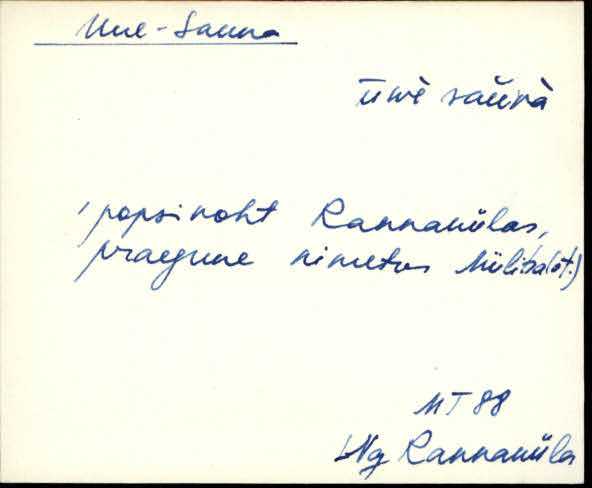 Uue-Sauna
ūwè saùnà
popsikoht Rannaküla,
praegune nimetus Külitsa(öt.)
MT 88
Ng Rannaküla